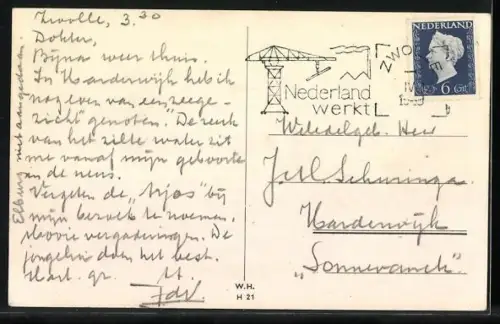 Zwolle, 3.30
Dokter,
Bijna weer thuis.
In Harderwijk heb ik
nog even van een zeege-
zicht genoten. De reuk
van het zilte water zit
me vanaf mijn geboorte
in de neus.
Vergeten de „Arjos" bij
mijn bezoek te noemen.
Mooie vergaderingen. De
jongelui doen het best.
Hart. gr. tt.
Elburg niet aangedaan.
Nederland
werkt
ZWOLLE
NEDERLAND
6 Ct
Weledelgeb. Heer
J. Schuringa
Harderwijk
„Sonnevanck"
W.H.
H 21